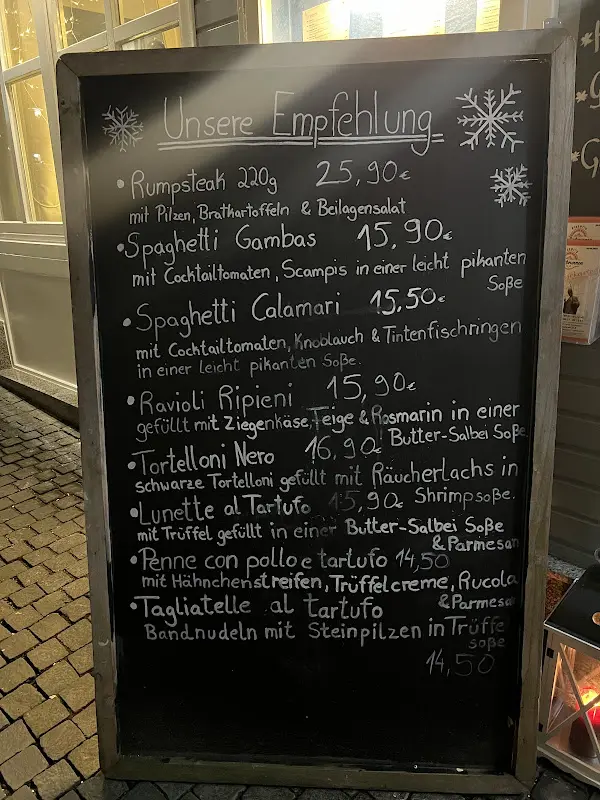 Unsere Empfehlung
• Rumpsteak 220g 25,90€
mit Pilzen, Bratkartoffeln & Beilagensalat
• Spaghetti Gambas 15,90€
mit Cocktailtomaten, Scampis in einer leicht pikanten
Soße
• Spaghetti Calamari 15,50€
mit Cocktailtomaten, Knoblauch & Tintenfischringen
in einer leicht pikanten Soße.
• Ravioli Ripieni 15,90€
gefüllt mit Ziegenkäse, Feige & Rosmarin in einer
Butter-Salbei Soße
• Tortelloni Nero 16,90€
schwarze Tortelloni gefüllt mit Räucherlachs in
Shrimpsoße.
• Lunette al Tartufo 15,90€
mit Trüffel gefüllt in einer Butter-Salbei Soße
& Parmesan
• Penne con pollo e tartufo 14,50
mit Hähnchenstreifen, Trüffelcreme, Rucola
& Parmesan
• Tagliatelle al tartufo
Bandnudeln mit Steinpilzen in Trüffel
soße
14,50